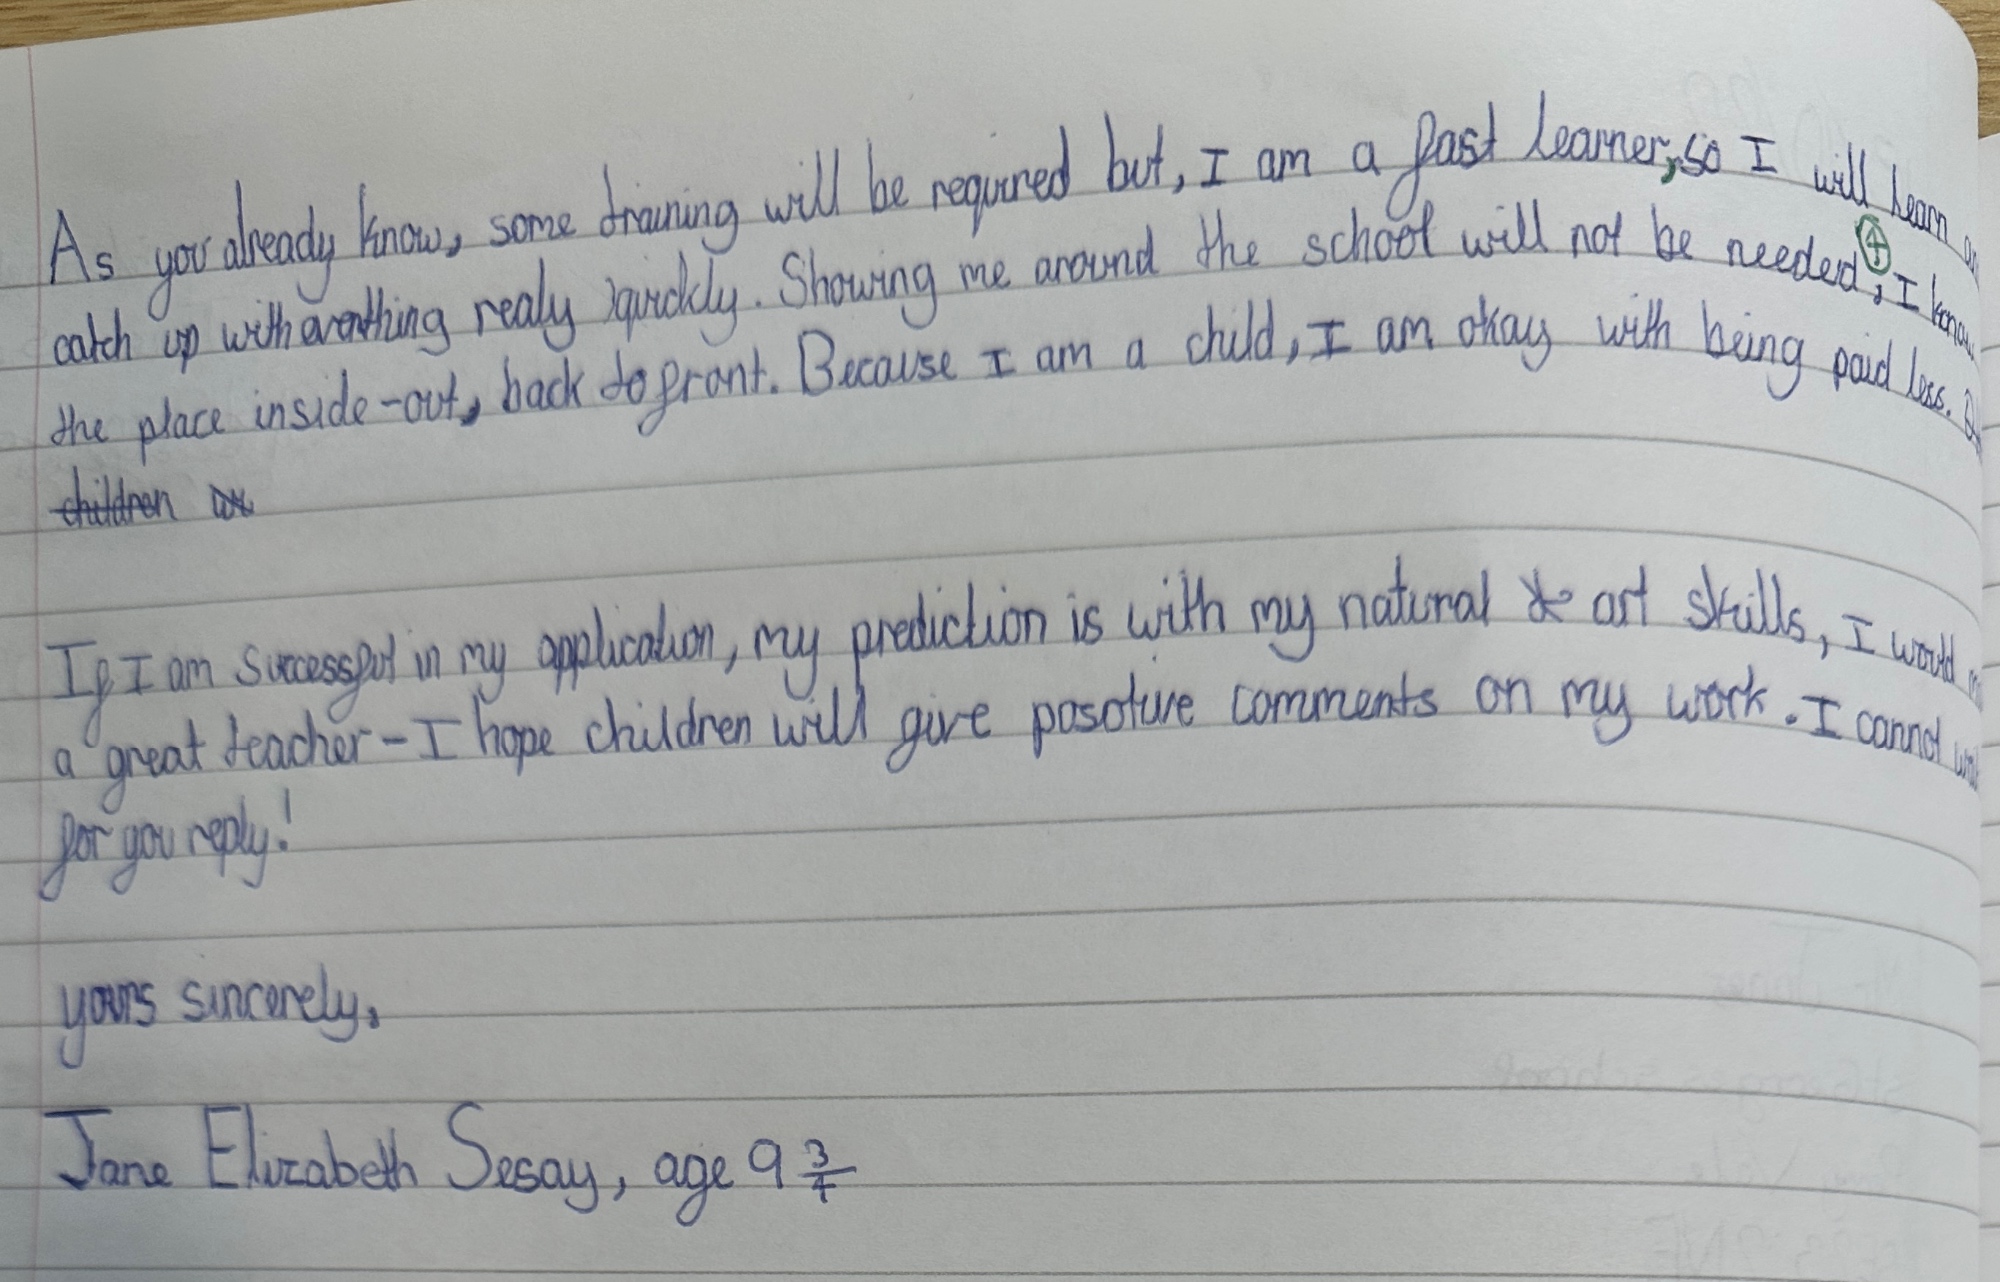 As you already know, some training will be required but, I am a fast learner, so I will learn
catch up with everything realy quickly. Showing me around the school will not be needed, I know
the place inside-out, back to front. Because I am a child, I am okay with being paid less.
children
If I am successful in my application, my prediction is with my natural art skills, I would
a great teacher - I hope children will give posotive comments on my work. I cannot
for you reply!
yours sincerely,
Jane Elizabeth Sesay, age 9 3/4